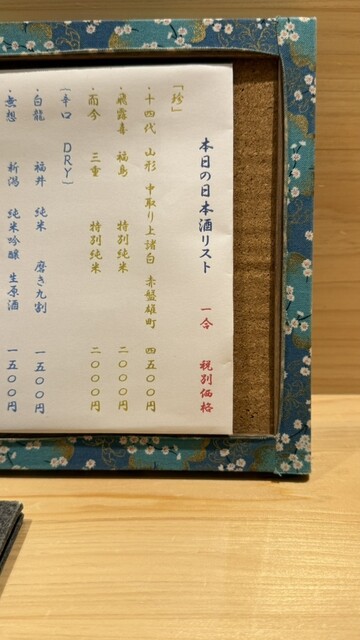 本日の日本酒リスト 一合 税別価格
「珍」
・十四代 山形 中取り上諸白 赤盤雄町 四五〇〇円
・飛露喜 福島 特別純米 二〇〇〇円
・而今 三重 特別純米 二〇〇〇円
(辛口 DRY)
・白龍 福井 純米 磨き九割 一五〇〇円
・無想 新潟 純米吟醸 生原酒 一五〇〇円